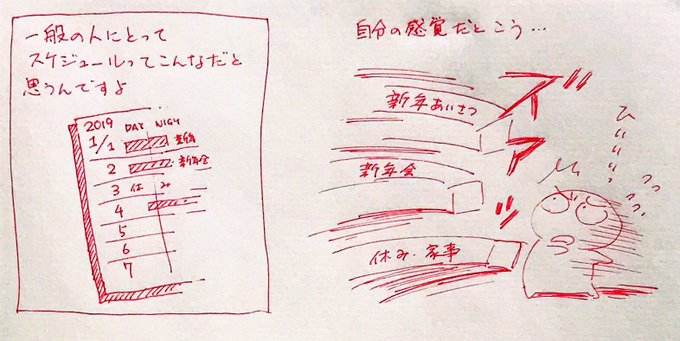 一般の人にとって
スケジュールってこんなだと
思うんですよ
2019 DAY NIGH
1/1
2 新年会
3 仕 み
4
5
6
7
自分の感覚だとこう…
新年あいさつ
新年会
休み・家事
ひぃぃぃぃ